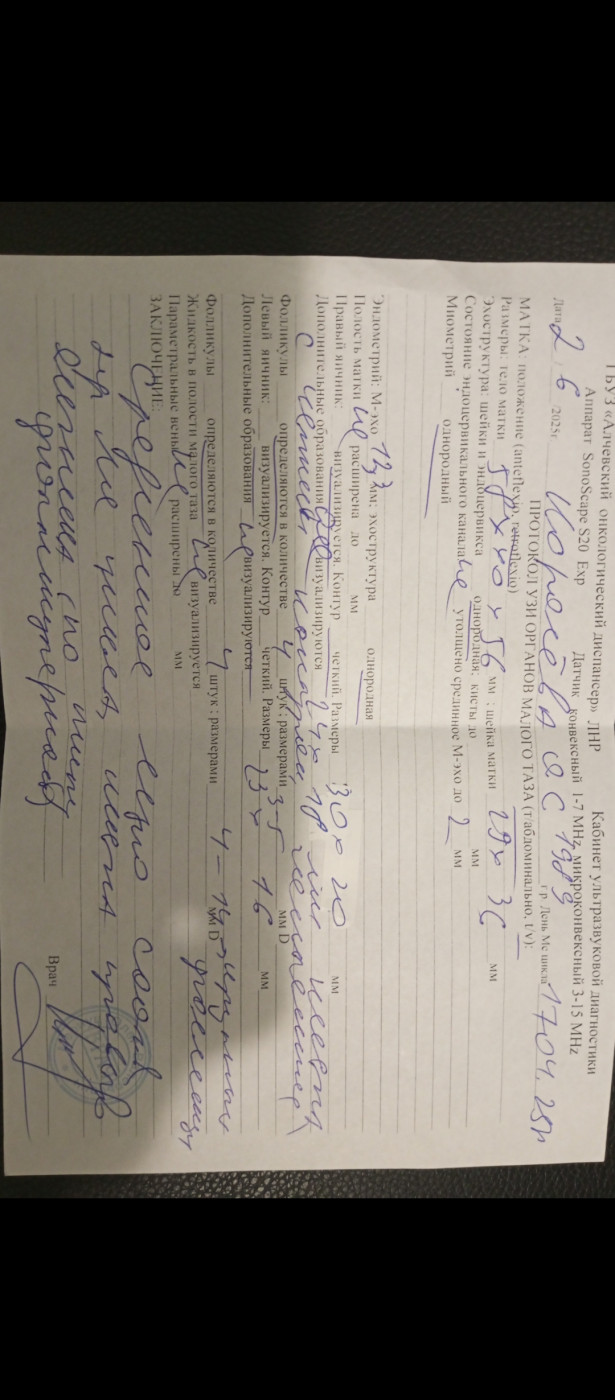 ГБУЗ «Алчевский онкологический диспансер» ЛНР Кабинет ультразвуковой диагностики
Аппарат SonoScape S20 Exp Датчик конвексный 1-7 MHz, микроконвексный 3-15 MHz
Дата 2 / 6 /2025г 1989 г.р. День Мс цикла 17.04.25г
ПРОТОКОЛ УЗИ ОРГАНОВ МАЛОГО ТАЗА (т/абдоминально, t/v):
МАТКА: положение (anteflexio, retroflexio)
Размеры: тело матки 58 х 40 х 56 мм ; шейка матки 29 х 36 мм
Эхоструктура: шейки и эндоцервикса однородная; кисты до мм
Состояние эндоцервикального канала не утолщено срединное М-эхо до 2 мм
Миометрий однородный
Эндометрий: М-эхо мм: эхоструктура однородная
Полость матки не расширена до мм
Правый яичник: визуализируется. Контур четкий. Размеры 30 х 20 мм
Дополнительные образования визуализируются 24 х 18 мм
с четким контуром
Фолликулы определяются в количестве 4 штук ; размерами 3-5 мм D
Левый яичник: визуализируется. Контур четкий. Размеры 23 х 16 мм
Дополнительные образования не визуализируются
Фолликулы определяются в количестве 4 штук ; размерами 4 - мм D
Жидкость в полости малого таза не визуализируется
Параметральные вены не расширены до мм
ЗАКЛЮЧЕНИЕ:
Срединное эхо соотв
цикла, киста правого
яичника (по типу
Врач